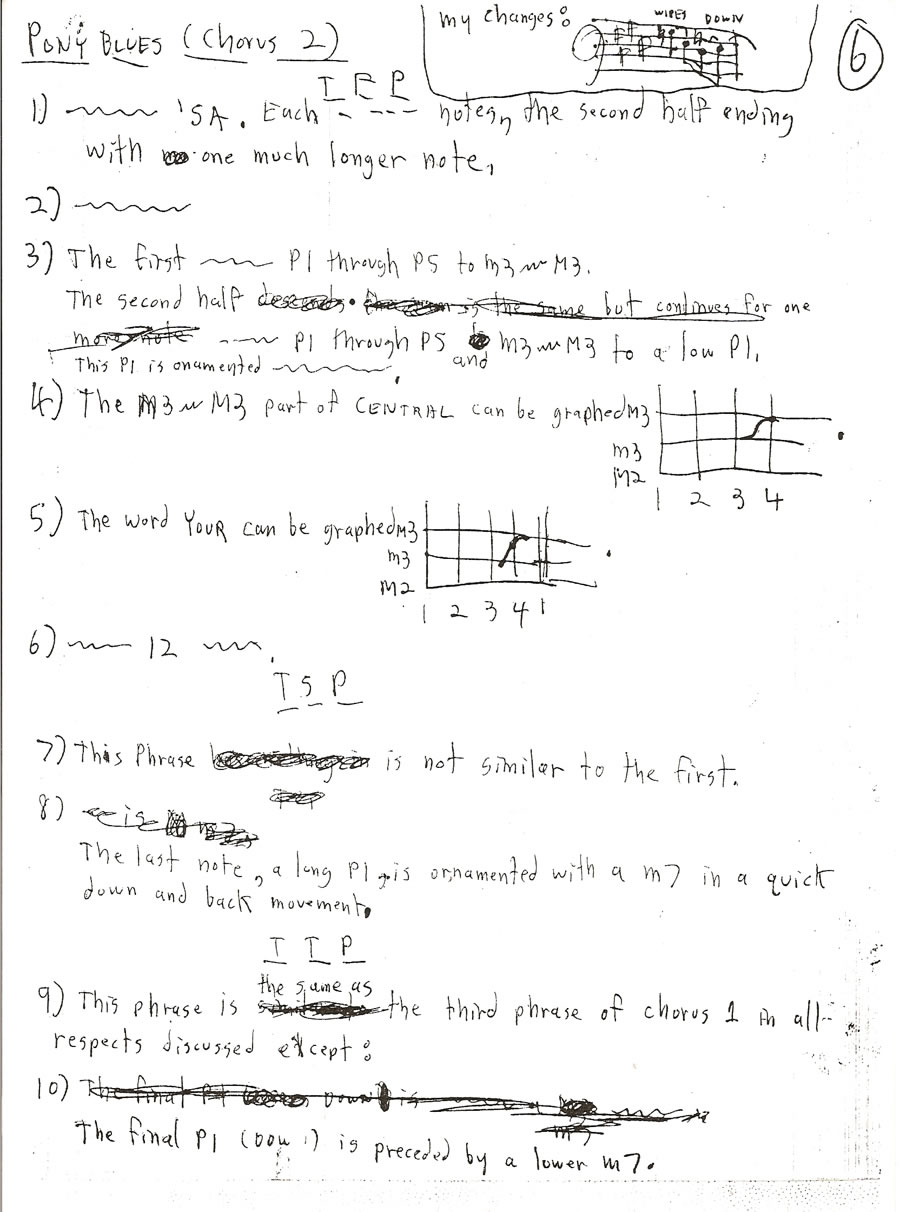 PONY BLUES (Chorus 2)
my changes:
WIPES DOWN
6
T F P
1) 'SA. Each notes, the second half ending
with one much longer note,
2)
3) The first P1 through P5 to m3 M3.
The second half is the same but continues for one
more note P1 through P5 and m3 M3 to a low P1.
This P1 is onamented
4) The m3 M3 part of CENTRAL can be graphed
M3
m3
M2
1 2 3 4
5) The word YOUR can be graphed
M3
m3
M2
1 2 3 4 1
6) 12
T S P
7) This Phrase is not similar to the first.
8) is
The last note, a long P1, is ornamented with a m7 in a quick
down and back movement.
T T P
the same as
9) This phrase is the third phrase of chorus 1 in all
respects discussed except:
10) The final P1 DOWN is
The final P1 is preceded by a lower m7.